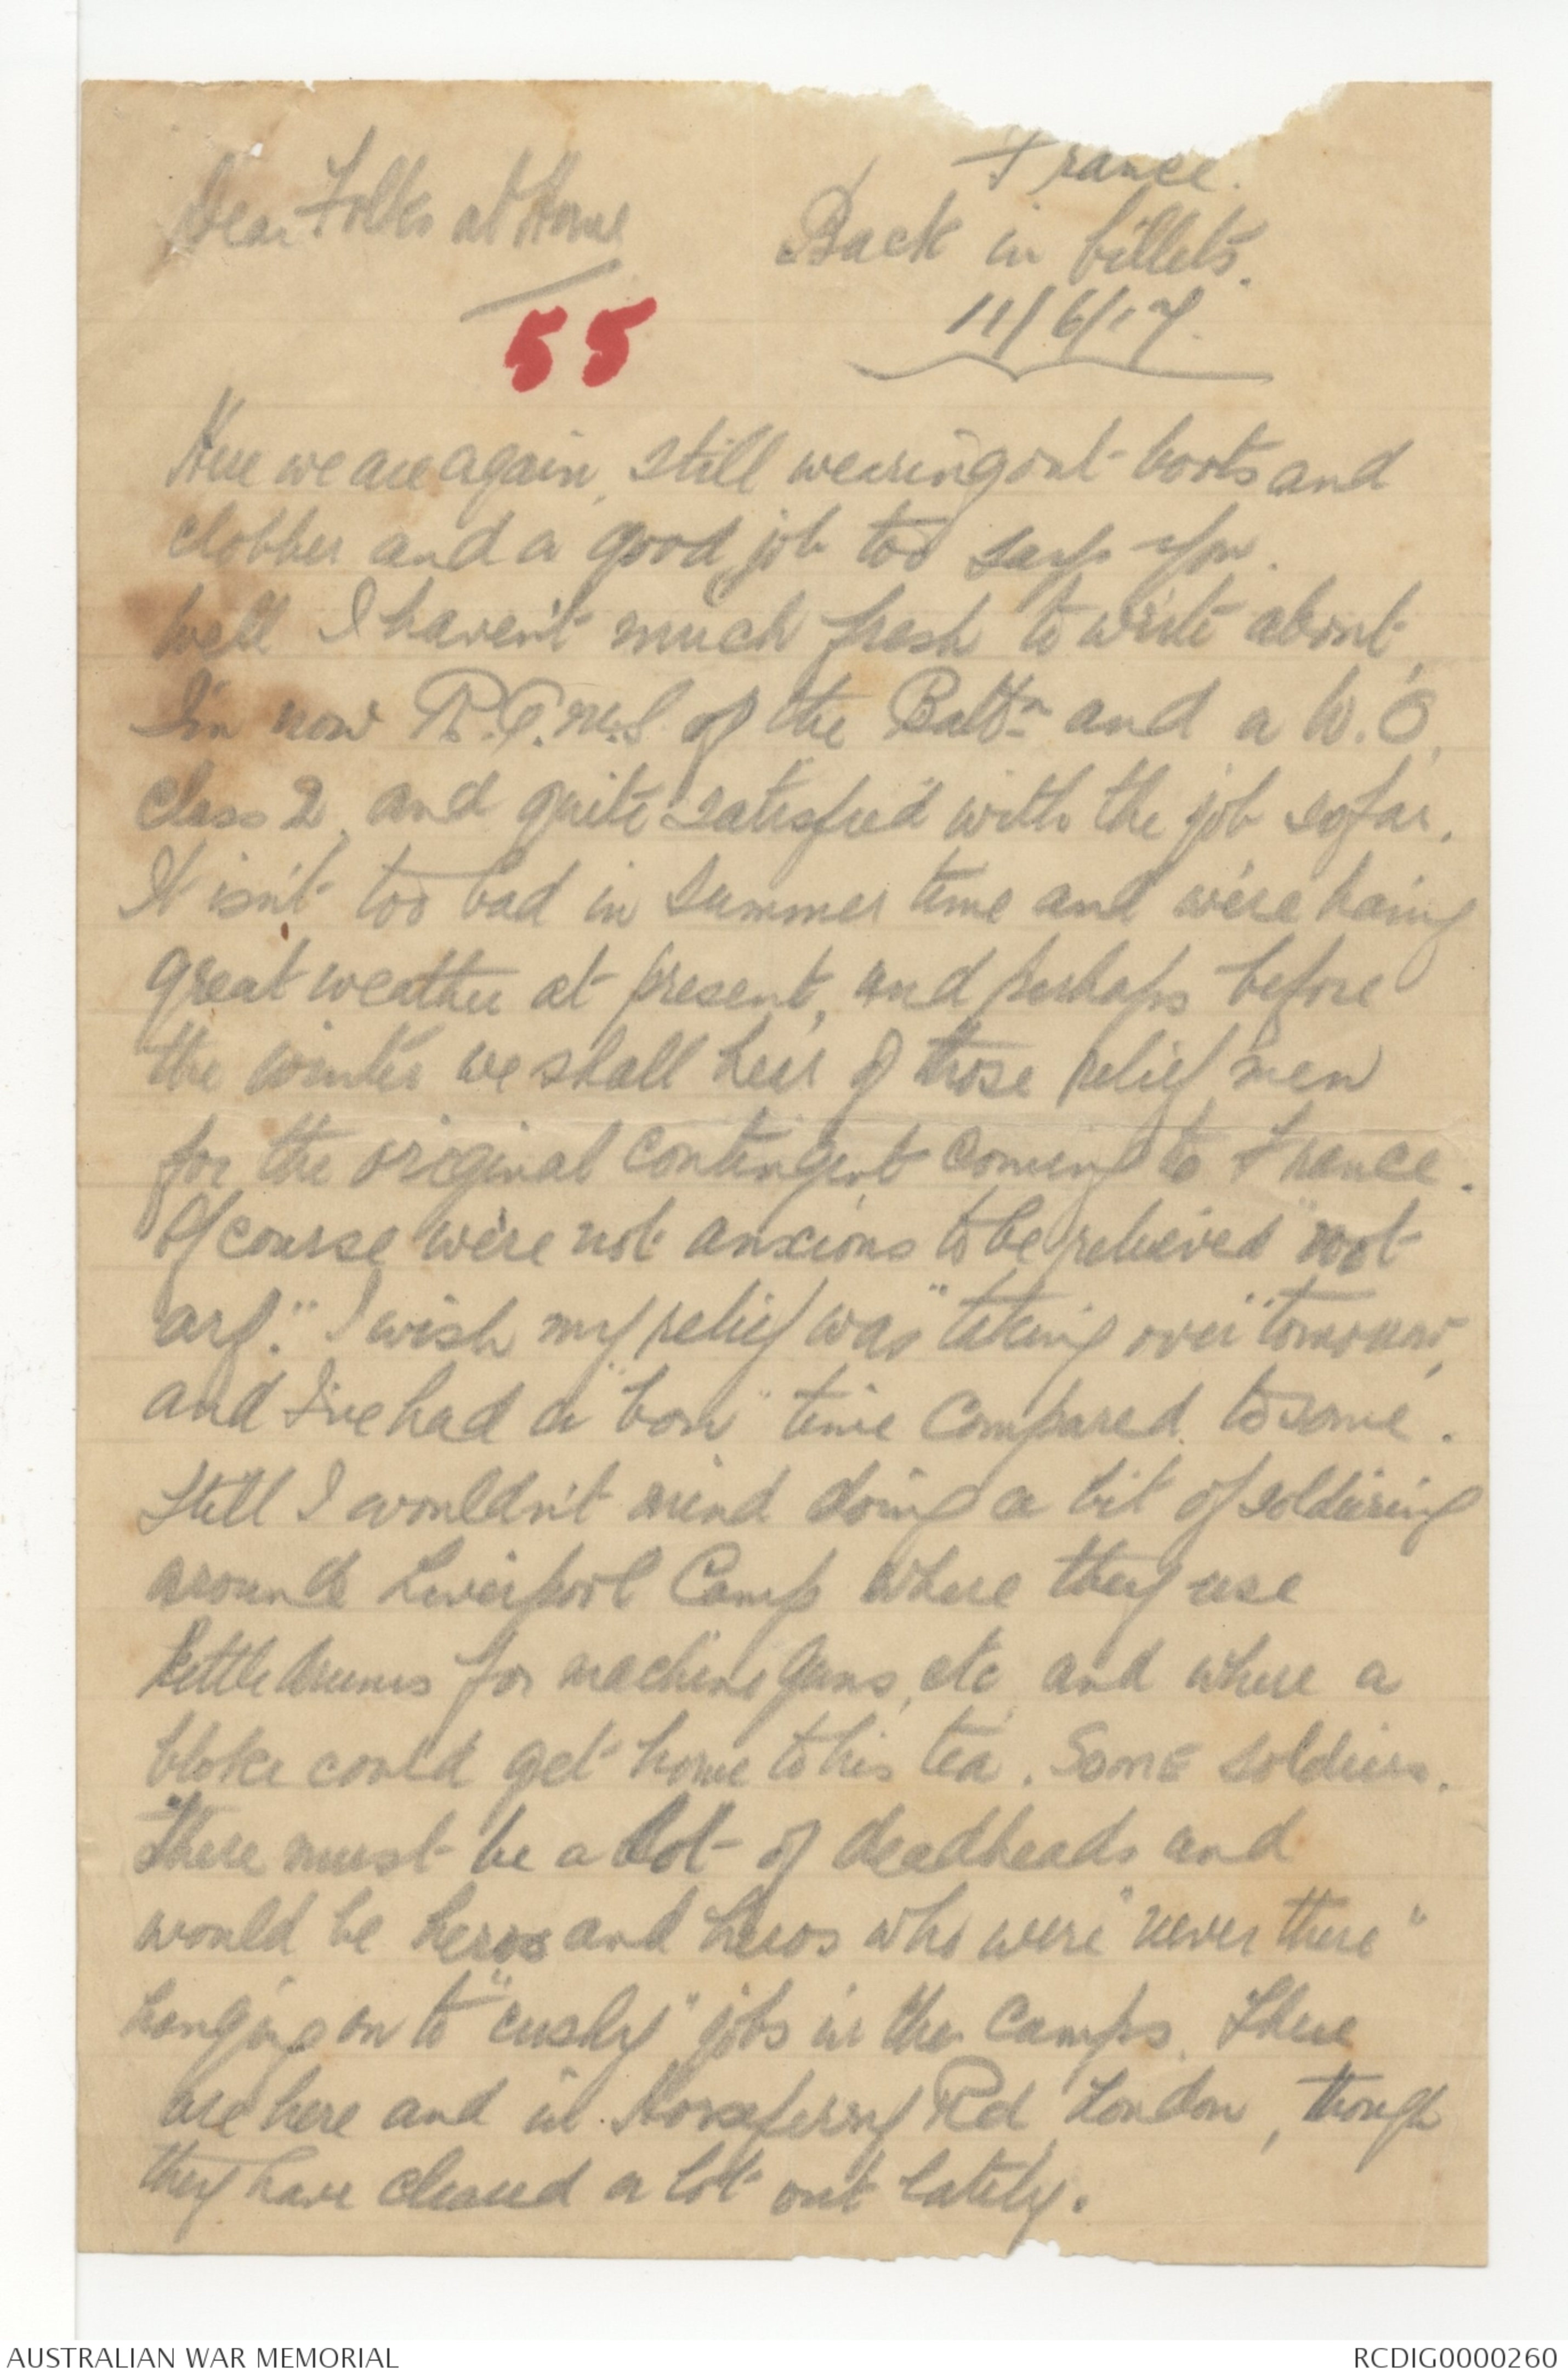 France.
Dear Folks at Home
Back in billets.
11/6/17.
55
Here we are again, still wearing out boots and
clobber and a good job too says you.
Well I haven't much fresh to write about,
I'm now R.Q.M.S of the Battn and a W.O,
class 2, and quite satisfied with the job so far.
It isn't too bad in summer time and we're having
great weather at present, and perhaps before
the winter we shall hear of those relief men
for the original contingent coming to France.
Of course we're not anxious to be relieved "not
arf." I wish my relief was "taking over" tomorrow,
and I've had a "bon" time compared to some.
Still I wouldn't mind doing a bit of soldiering
around Liverpool Camp where they use
kettle drums for machine guns, etc, and where a
bloke could get home to his tea. Some soldiers.
There must be a lot of deadheads and
would be heros and heros who were "never there"
hanging on to "cushy" jobs in the camps. There
are here and in Horseferry Rd London, though
they have cleared a lot out lately.
AUSTRALIAN WAR MEMORIAL
RCDIG0000260